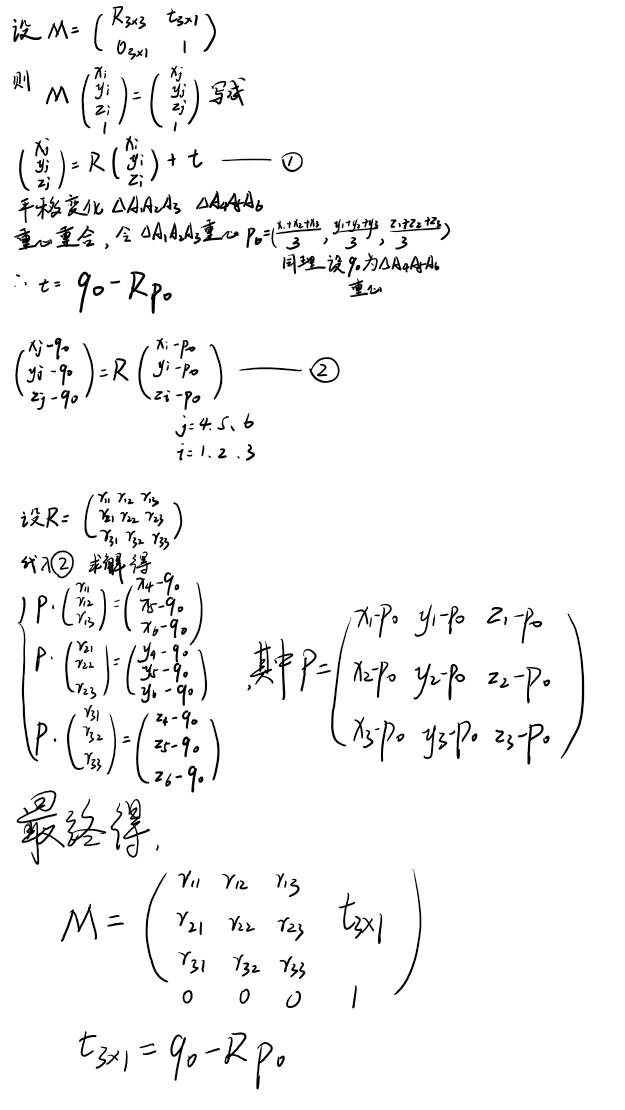 设 M = ( R₃ₓ₃ t₃ₓ₁
0₃ₓ₁ 1 )
则 M ( xᵢ yᵢ zᵢ 1 ) = ( xⱼ yⱼ zⱼ 1 ) 写成
( xⱼ yⱼ zⱼ ) = R ( xᵢ yᵢ zᵢ ) + t —— ①
平移变化 △A₁A₂A₃ △A₄A₅A₆
重心重合, 令 △A₁A₂A₃重心 p₀=(x₁+x₂+x₃/3, y₁+y₂+y₃/3, z₁+z₂+z₃/3)
同理 设q₀为△A₄A₅A₆
重心
∴ t = q₀ - Rp₀
( xⱼ-q₀ yⱼ-q₀ zⱼ-q₀ ) = R ( xᵢ-p₀ yᵢ-p₀ zᵢ-p₀ ) —— ②
j=4、5、6
i=1、2、3
设R = ( r₁₁ r₁₂ r₁₃
r₂₁ r₂₂ r₂₃
r₃₁ r₃₂ r₃₃ )
代入② 求解得
P · ( r₁₁ r₁₂ r₁₃ ) = ( x₄-q₀ x₅-q₀ x₆-q₀ )
P · ( r₂₁ r₂₂ r₂₃ ) = ( y₄-q₀ y₅-q₀ y₆-q₀ )
P · ( r₃₁ r₃₂ r₃₃ ) = ( z₄-q₀ z₅-q₀ z₆-q₀ )
,其中 P = ( x₁-p₀ y₁-p₀ z₁-p₀
x₂-p₀ y₂-p₀ z₂-p₀
x₃-p₀ y₃-p₀ z₃-p₀ )
最终得,
M = ( r₁₁ r₁₂ r₁₃
r₂₁ r₂₂ r₂₃ t₃ₓ₁
r₃₁ r₃₂ r₃₃
0 0 0 1 )
t₃ₓ₁ = q₀ - Rp₀